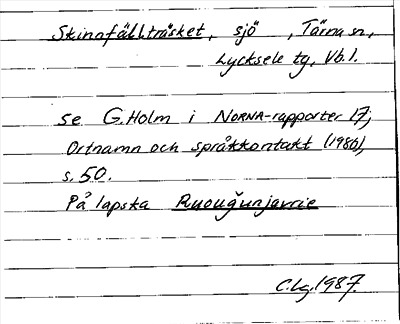 Skinnfällträsket, sjö, Tärna sn,
Lycksele tg, Vb.l.
se G.Holm i NORNA-rapporter 17,
Ortnamn och språkkontakt (1980),
s. 50.
På lapska Ruouǧunjavrie
C.Lg.1987.